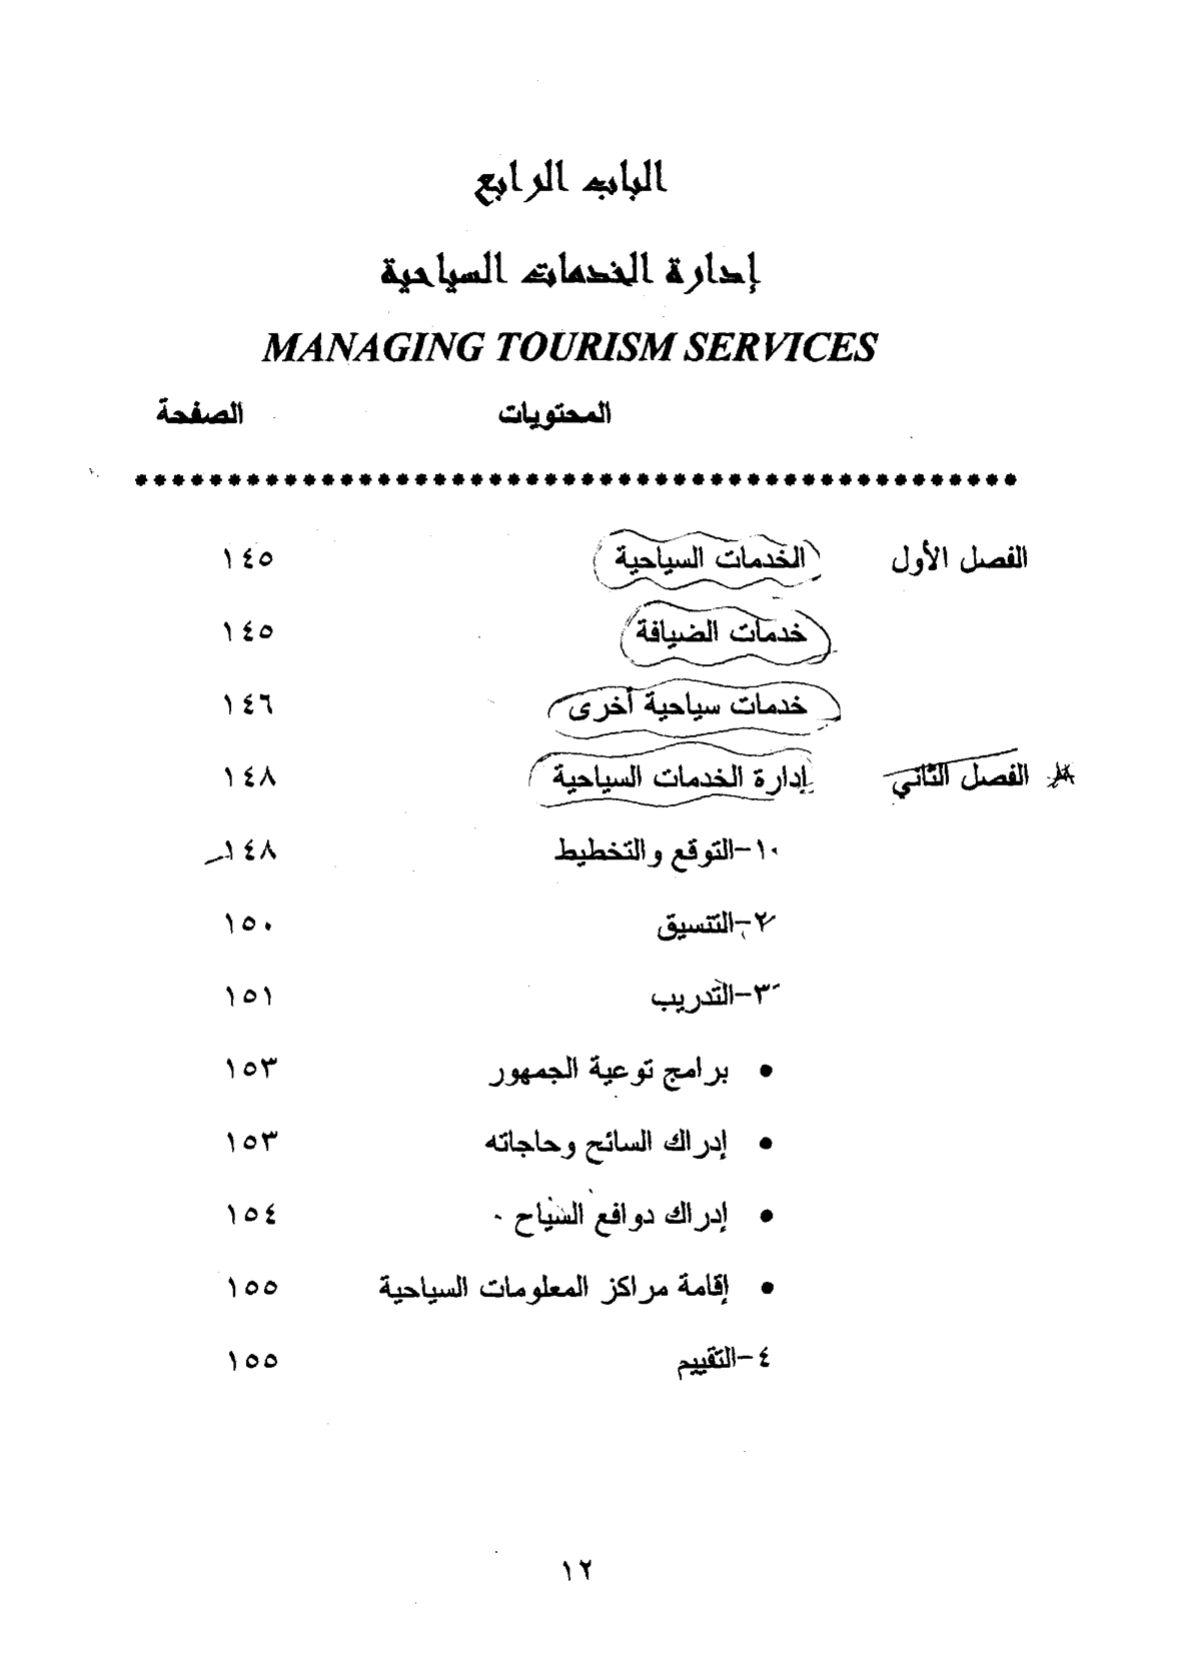 الباب الرابع
إدارة الخدمات السياحية
MANAGING TOURISM SERVICES
المحتويات الصفحة
الفصل الأول الخدمات السياحية ١٤٥
خدمات الضيافة ١٤٥
خدمات سياحية أخرى ١٤٦
الفصل الثاني إدارة الخدمات السياحية ١٤٨
١-التوقع والتخطيط ١٤٨
٢-التنسيق ١٥٠
٣-التدريب ١٥١
• برامج توعية الجمهور ١٥٣
• إدراك السائح وحاجاته ١٥٣
• إدراك دوافع السياح ١٥٤
• إقامة مراكز المعلومات السياحية ١٥٥
٤-التقييم ١٥٥
١٢